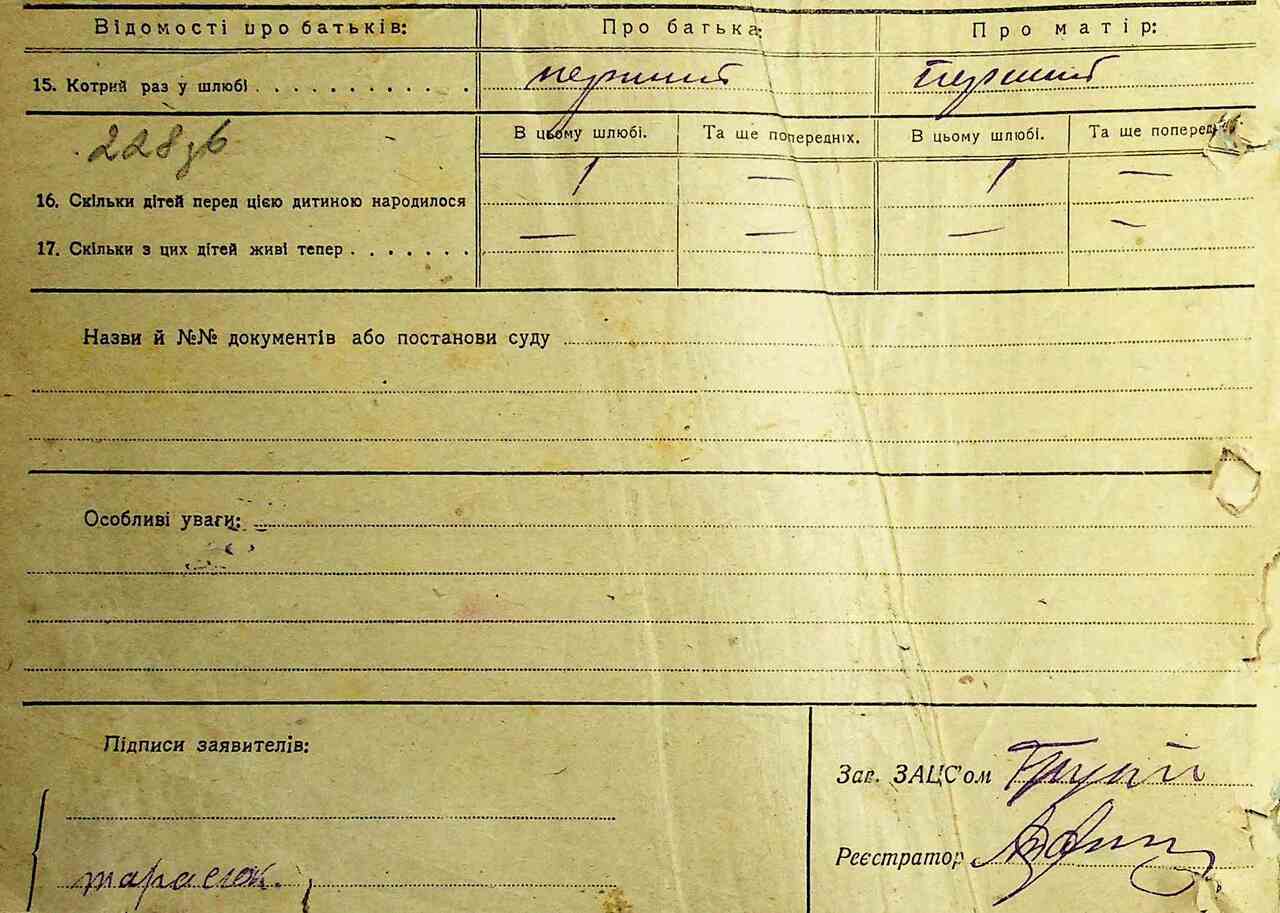 Відомості про батьків: Про батька: Про матір:
15. Котрий раз у шлюбі . . . . . . . . . . . . перший перший
В цьому шлюбі. Та ще попередніх. В цьому шлюбі. Та ще поперед
16. Скільки дітей перед цією дитиною народилося 1 — 1 —
17. Скільки з цих дітей живі тепер . . . . . . . — — — —
Назви й №№ документів або постанови суду
Особливі уваги:
Підписи заявителів:
Зав. ЗАЦС'ом
Реєстратор
тарасюк.